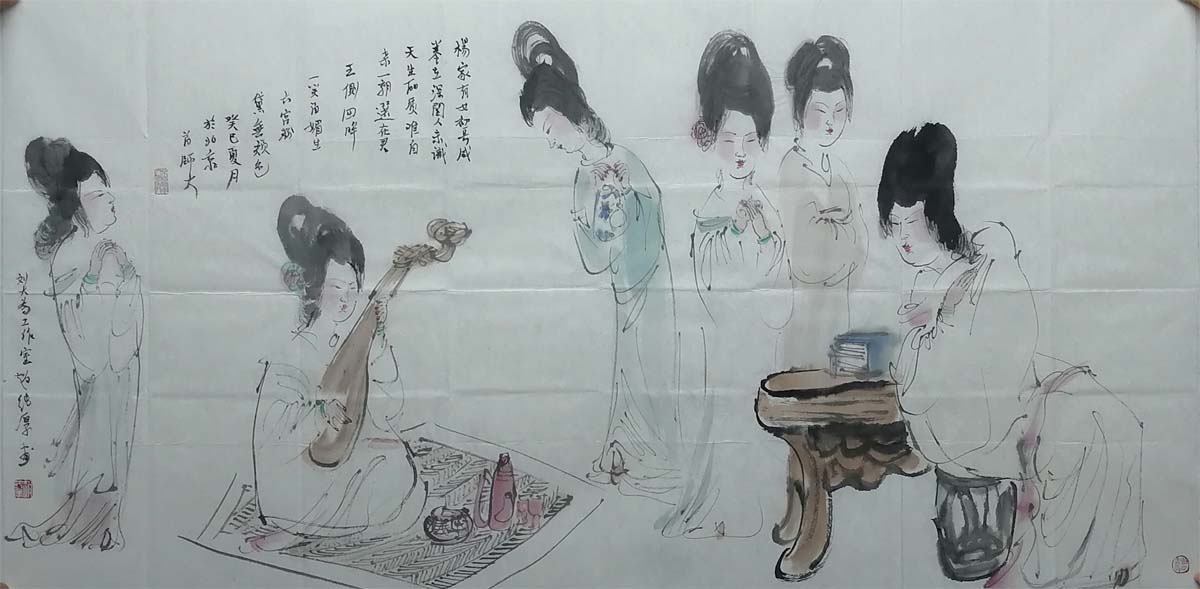 楊家有女初長成
養在深閨人未識
天生丽质难自
弃一朝選在君
王側回眸
一笑百媚生
六宫粉
黛無颜色
癸巳夏月
於北京
首师大
刘大为工作室
纯厚画